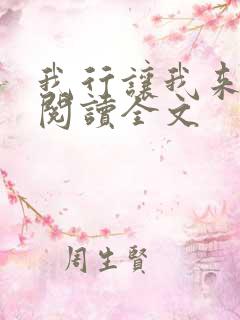 我行讓我來
閱讀全文
周生賢